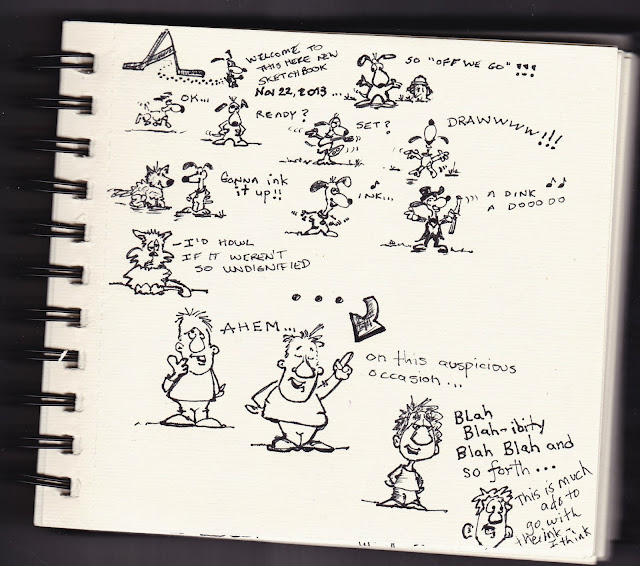 WELCOME TO
THIS HERE NEW
SKETCHBOOK
NOV 22, 2013 ...
SO "OFF WE GO" !!!
OK...
READY?
SET?
DRAWWWW!!!
GONNA ink
it up!!
INK...
A DINK
A DOOODO
- I'D HOWL
IF IT WEREN'T
SO UNDIGNIFIED
...
AHEM...
on this auspicious
occasion...
BLAH
BLAH-ibity
BLAH BLAH and
so forth...
This is much
ado to
go with
the ink
I think